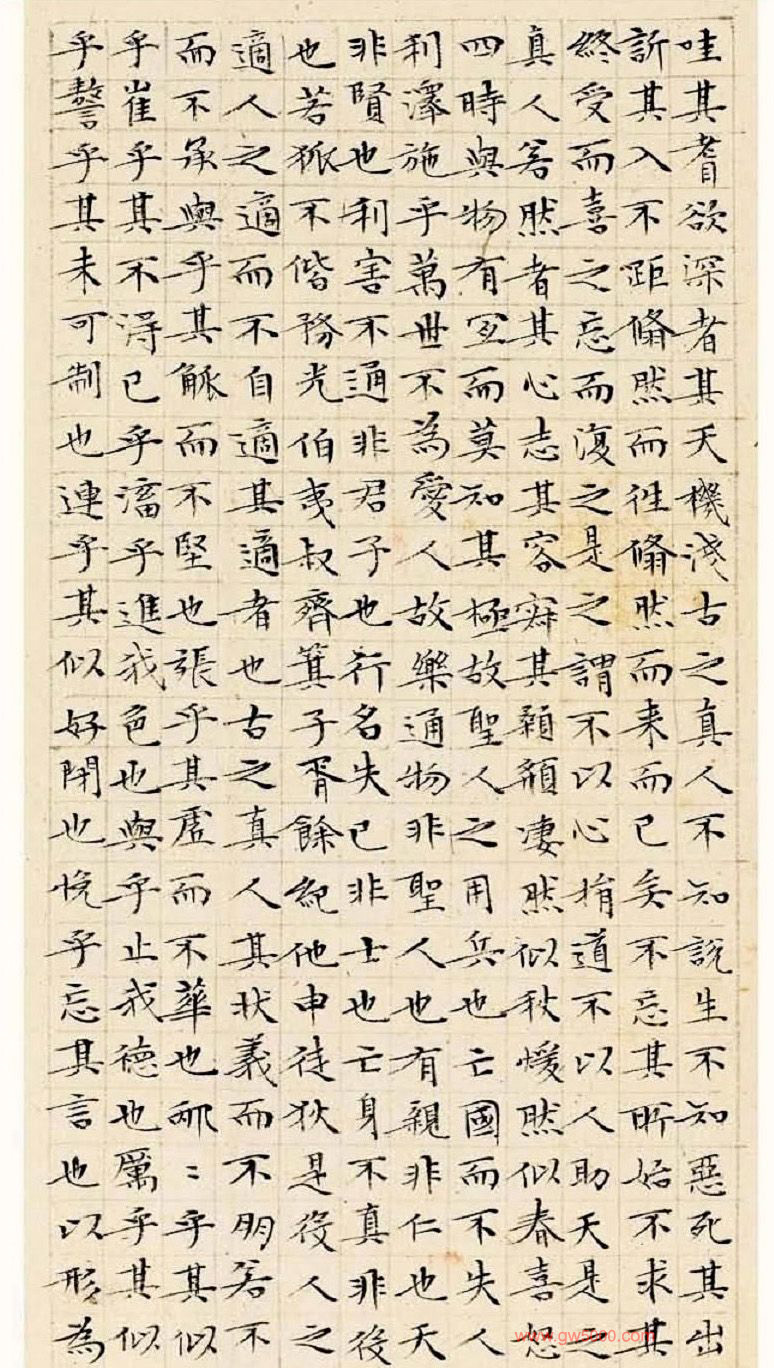 哇其耆欲深者其天機淺古之真人不知說生不知惡死其出
訢其入不距翛然而往翛然而来而已矣不忘其所始不求其
終受而喜之忘而復之是之謂不以心捐道不以人助天是之
真人若然者其心志其容寂其顙頯凄然似秋煖然似春喜怒
四時與物有宜而莫知其極故聖人之用兵也亡國而不失人
利澤施乎萬世不為愛人故樂通物非聖人也有親非仁也天
非賢也利害不通非君子也行名失己非士也亡身不真非役
也若狐不偕務光伯夷叔齊箕子胥餘紀他申徒狄是役人之
適人之適而不自適其適者也古之真人其狀義而不朋若不
而不承與乎其觚而不堅也張乎其虛而不華也邴〻乎其似
乎崔乎其不得已乎滀乎進我色也與乎止我德也厲乎其似
乎謷乎其未可制也連乎其似好閉也悗乎忘其言也以形為